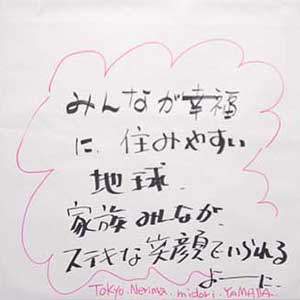 みんなが幸福
に. 住みやすい
地球.
家族みんなが.
ステキな笑顔でいられる
よーに.
Tokyo. Nerima. midori. YAMADA.